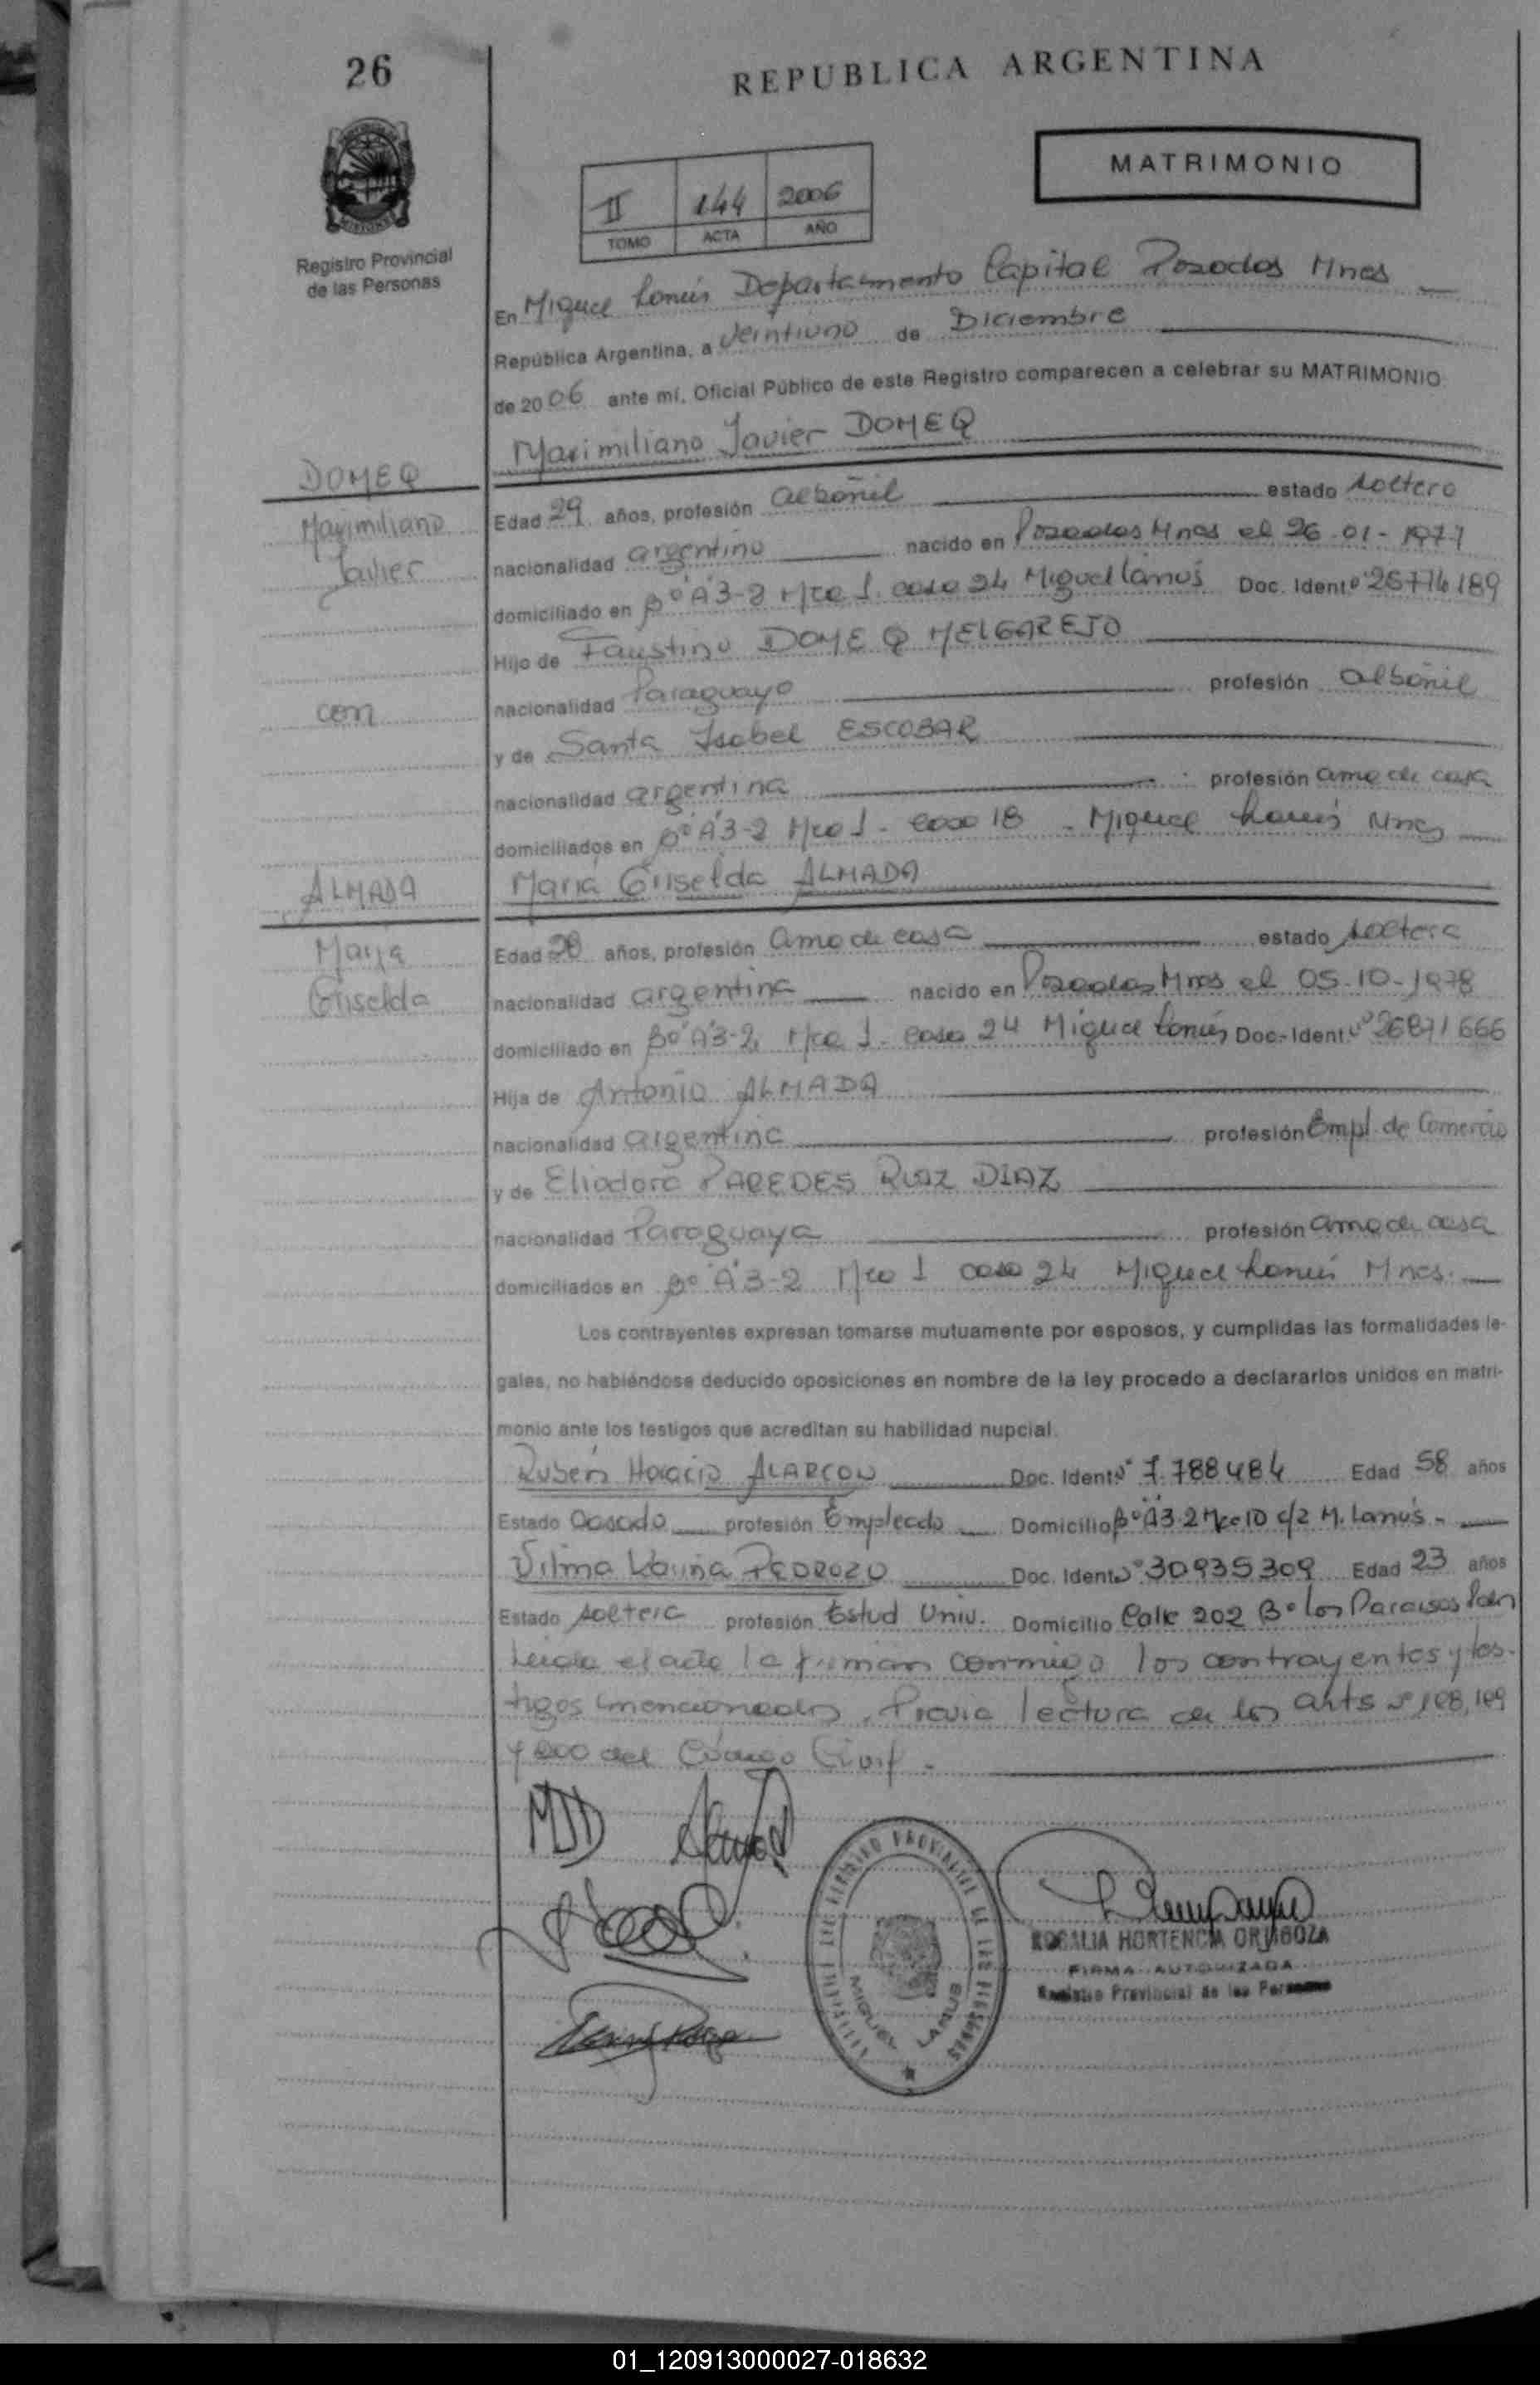 26
REPUBLICA ARGENTINA
MATRIMONIO
II 144 2006
TOMO ACTA AÑO
Registro Provincial
de las Personas
En Miguel Lanús Departamento Capital Posadas Mnes
República Argentina, a Veintiuno de Diciembre
de 2006 ante mí, Oficial Público de este Registro comparecen a celebrar su MATRIMONIO
Maximiliano Javier DOMEQ
DOMEQ
Maximiliano
Javier
con
ALMADA
María
Griselda
Edad 29 años, profesión albañil estado soltero
nacionalidad argentino nacido en Posadas Mnes el 26-01-1977
domiciliado en Bº A3-2 Mza 1. casa 24 Miguel Lanús Doc. Ident. Nº 25774189
Hijo de Faustino DOMEQ MELGAREJO
nacionalidad Paraguayo profesión albañil
y de Santa Isabel ESCOBAR
nacionalidad argentina profesión ama de casa
domiciliados en Bº A3-2 Mza 1 - casa 18 - Miguel Lanús Mnes
María Griselda ALMADA
Edad 28 años, profesión ama de casa estado soltera
nacionalidad argentina nacido en Posadas Mnes el 05-10-1978
domiciliado en Bº A3-2, Mza 1 - casa 24 Miguel Lanús Doc. Ident. Nº 26871666
Hija de Antonio ALMADA
nacionalidad argentina profesión Empl. de Comercio
y de Eliodora PAREDES RUIZ DIAZ
nacionalidad Paraguaya profesión ama de casa
domiciliados en Bº A3-2 Mza 1 casa 24 Miguel Lanús Mnes.
Los contrayentes expresan tomarse mutuamente por esposos, y cumplidas las formalidades le-
gales, no habiéndose deducido oposiciones en nombre de la ley procedo a declararlos unidos en matri-
monio ante los testigos que acreditan su habilidad nupcial.
Rubén Horacio ALARCON Doc. Ident. Nº 7.788484 Edad 58 años
Estado Casado profesión Empleado Domicilio Bº A3-2 Mza 10 c/2 M. Lanús -
Vilma Karina PEDROZO Doc. Ident. Nº 30935309 Edad 23 años
Estado soltera profesión Estud Univ. Domicilio Calle 202 Bº Los Paraisos
Leida el acta la firman conmigo los contrayentes y tes-
tigos mencionados. Previa lectura de los arts Nº 198, 199
y 200 del Código Civil -
MJD
REGISTRO PROVINCIAL DE LAS PERSONAS
MIGUEL LANUS
ROSALIA HORTENCIA ORJIGOZA
FIRMA AUTORIZADA
Registro Provincial de las Personas
01_120913000027-018632